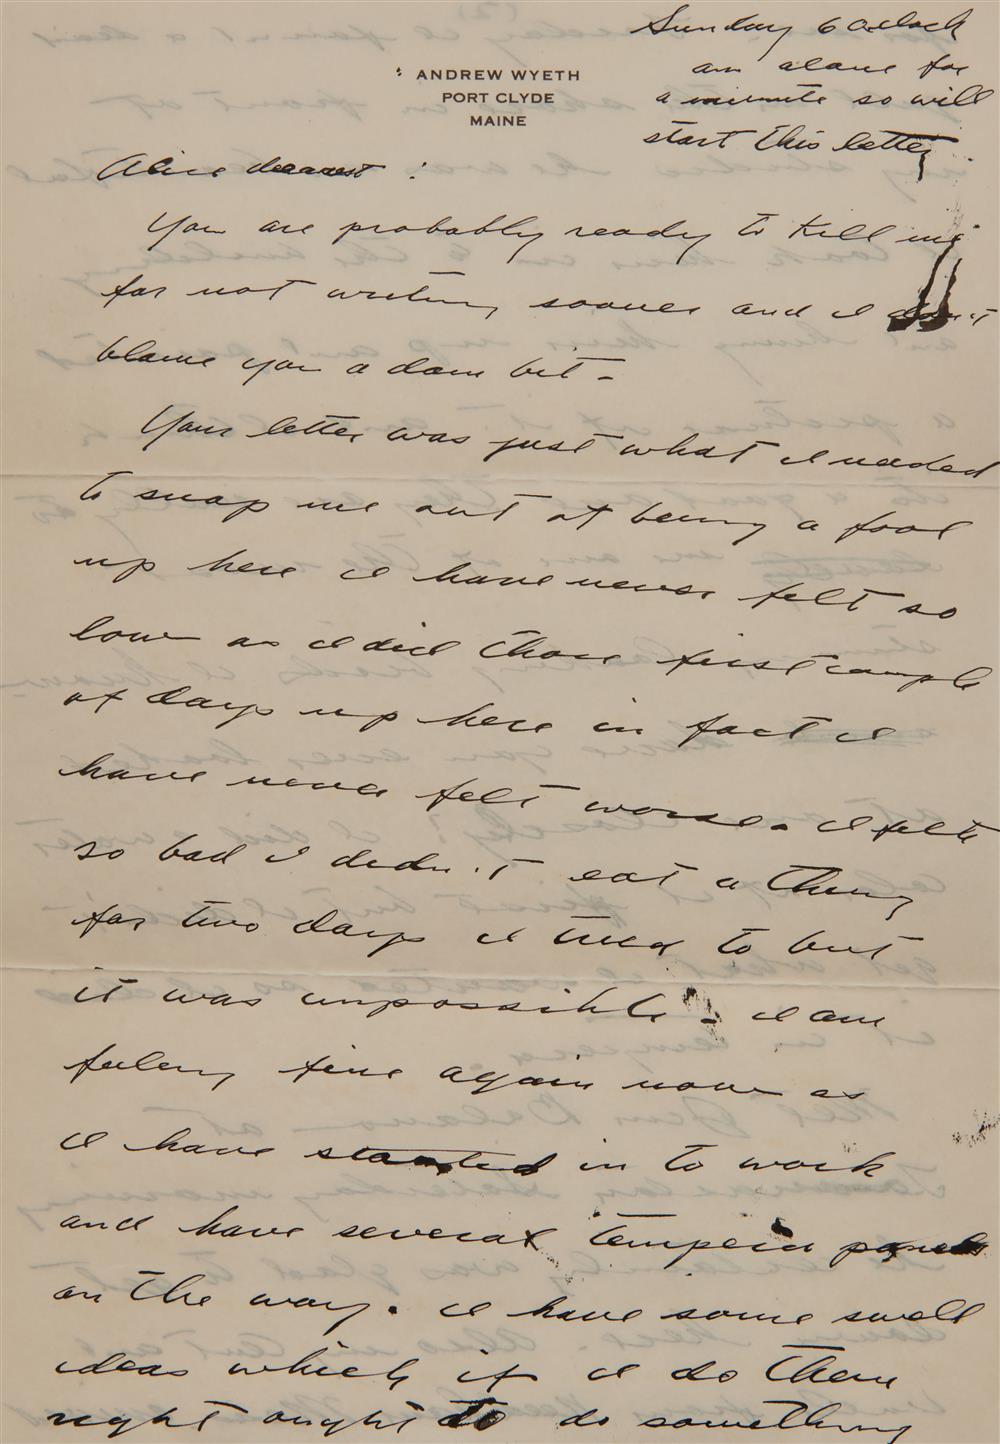 Sunday 6 oclock
am alone for
a minute so will
start this letter
ANDREW WYETH
PORT CLYDE
MAINE
Alice dearest :
You are probably ready to kill me
for not writing sooner and I don't
blame you a dam bit -
Your letter was just what I needed
to snap me out of being a fool
up here I have never felt so
low as I did those first couple
of days up here in fact I
have never felt worse. I felt
so bad I didn't eat a thing
for two days I tried to but
it was unpossible - I am
feeling fine again now as
I have started in to work
and have several tempera panels
on the way. I have some swell
ideas which if I do them
right ought to do something